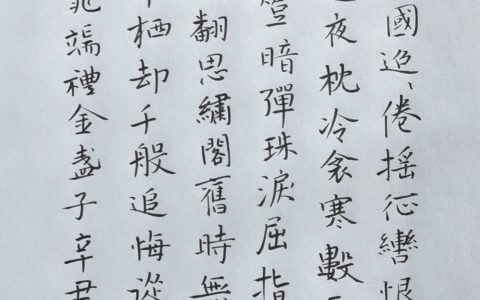 國迢〻倦摇征轡恨
夜枕冷衾寒數
暗彈珠淚屈指
翻思繡閣舊時無
栖却千般追悔從
端禮金盞子辛